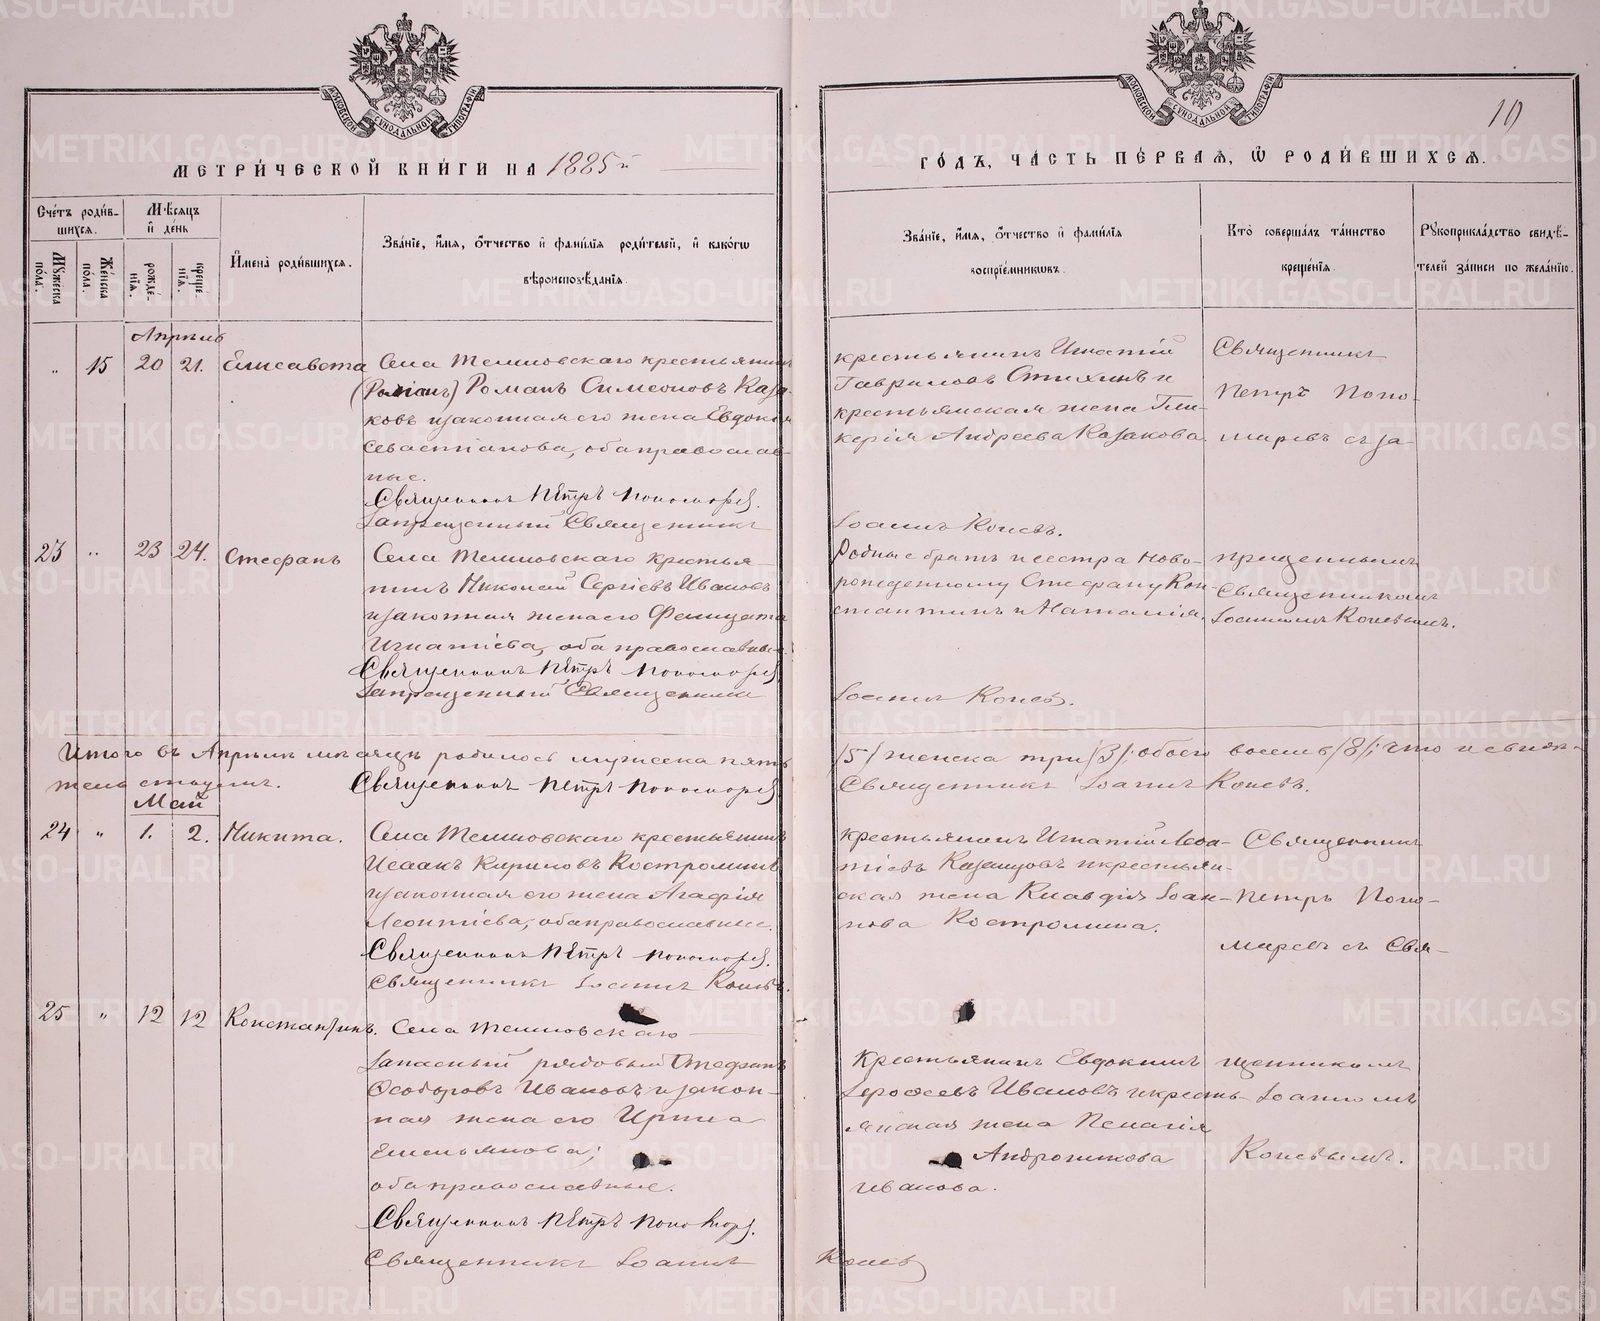 МЕТРИ́ЧЕСКОЙ КНИ́ГИ НА 1885й
ГО́ДЪ, ЧА́СТЬ ПЕ́РВАѦ, Ѡ РОДИ́ВШИХСѦ.
10
Сче́тъ роди́в-
шихсѧ.
Му́жеска по́ла.
Же́нска по́ла.
Мѣсѧцъ и де́нь
рожде́-
нїѧ.
креще́-
нїѧ.
Имена̀ роди́вшихсѧ.
Зва́нїе, и́мѧ, ѻ́тчество и фами́лїѧ роди́телей, и како́гѡ
вѣроисповѣ́данїѧ.
Зва́нїе, и́мѧ, ѻ́тчество и фами́лїѧ
воспрїе́мникѡвъ.
Кто̀ соверша́лъ та́инство
креще́нїѧ.
Рꙋкоприкла́дство свидѣ́-
телей за́писи по жела́нїю.
Апрѣль
" 15 20 21. Елисавета
Села Темновскаго крестьянинъ
(Роман) Романъ Симеоновъ Каза-
ковъ и законная его жена Евдокия
Севастианова, оба православ-
ные.
Священникъ Петръ Пономаревъ.
Запрещенный Священникъ Іоаннъ Коневъ.
крестьянинъ Игнатій
Гавриловъ Стихинъ и
крестьянская жена Гли-
керія Андреева Казакова.
Священникъ
Петръ Поно-
маревъ съ за-
23 " 23 24. Стефанъ
Села Темновскаго крестья-
нинъ Николай Сергіевъ Ивановъ
и законная жена его Фелицата
Игнатіева, оба православные.
Священникъ Петръ Пономаревъ
Запрещенный Священникъ Іоаннъ Коневъ.
Родные братъ и сестра ново-
рожденному Стефану Кон-
стантинъ и Наталія.
прещеннымъ
Священникомъ
Іоанномъ Коневымъ.
Итого въ Апрѣлѣ мѣсяцѣ родилось мужеска пять /5/ женска три /3/; обоего восемь /8/; что и свидѣ-
тельствуемъ. Священникъ Петръ Пономаревъ Священникъ Іоаннъ Коневъ.
Май
24 " 1. 2. Никита.
Села Темновскаго крестьянинъ
Исаакъ Кириловъ Костроминъ
и законная его жена Агафія
Леонтіева, оба православные.
Священникъ Петръ Пономаревъ.
Священникъ Іоаннъ Коневъ.
крестьянинъ Игнатій Леон-
тіевъ Казанцовъ и крестьян-
ская жена Клавдія Іоан-
нова Костромина.
Священникъ
Петръ Поно-
маревъ съ Свя-
25 " 12 12 Константинъ.
Села Темновскаго
Запасный рядовый Стефанъ
Ѳеодоровъ Ивановъ и закон-
ная жена его Ирина
Емельянова;
оба православные.
Священникъ Петръ Пономаревъ.
Священникъ Іоаннъ Коневъ
Крестьянинъ Евдокимъ
Іероѳеевъ Ивановъ и кресть-
янская жена Пелагія
Андроникова
Иванова.
щенникомъ
Іоанномъ
Коневымъ.